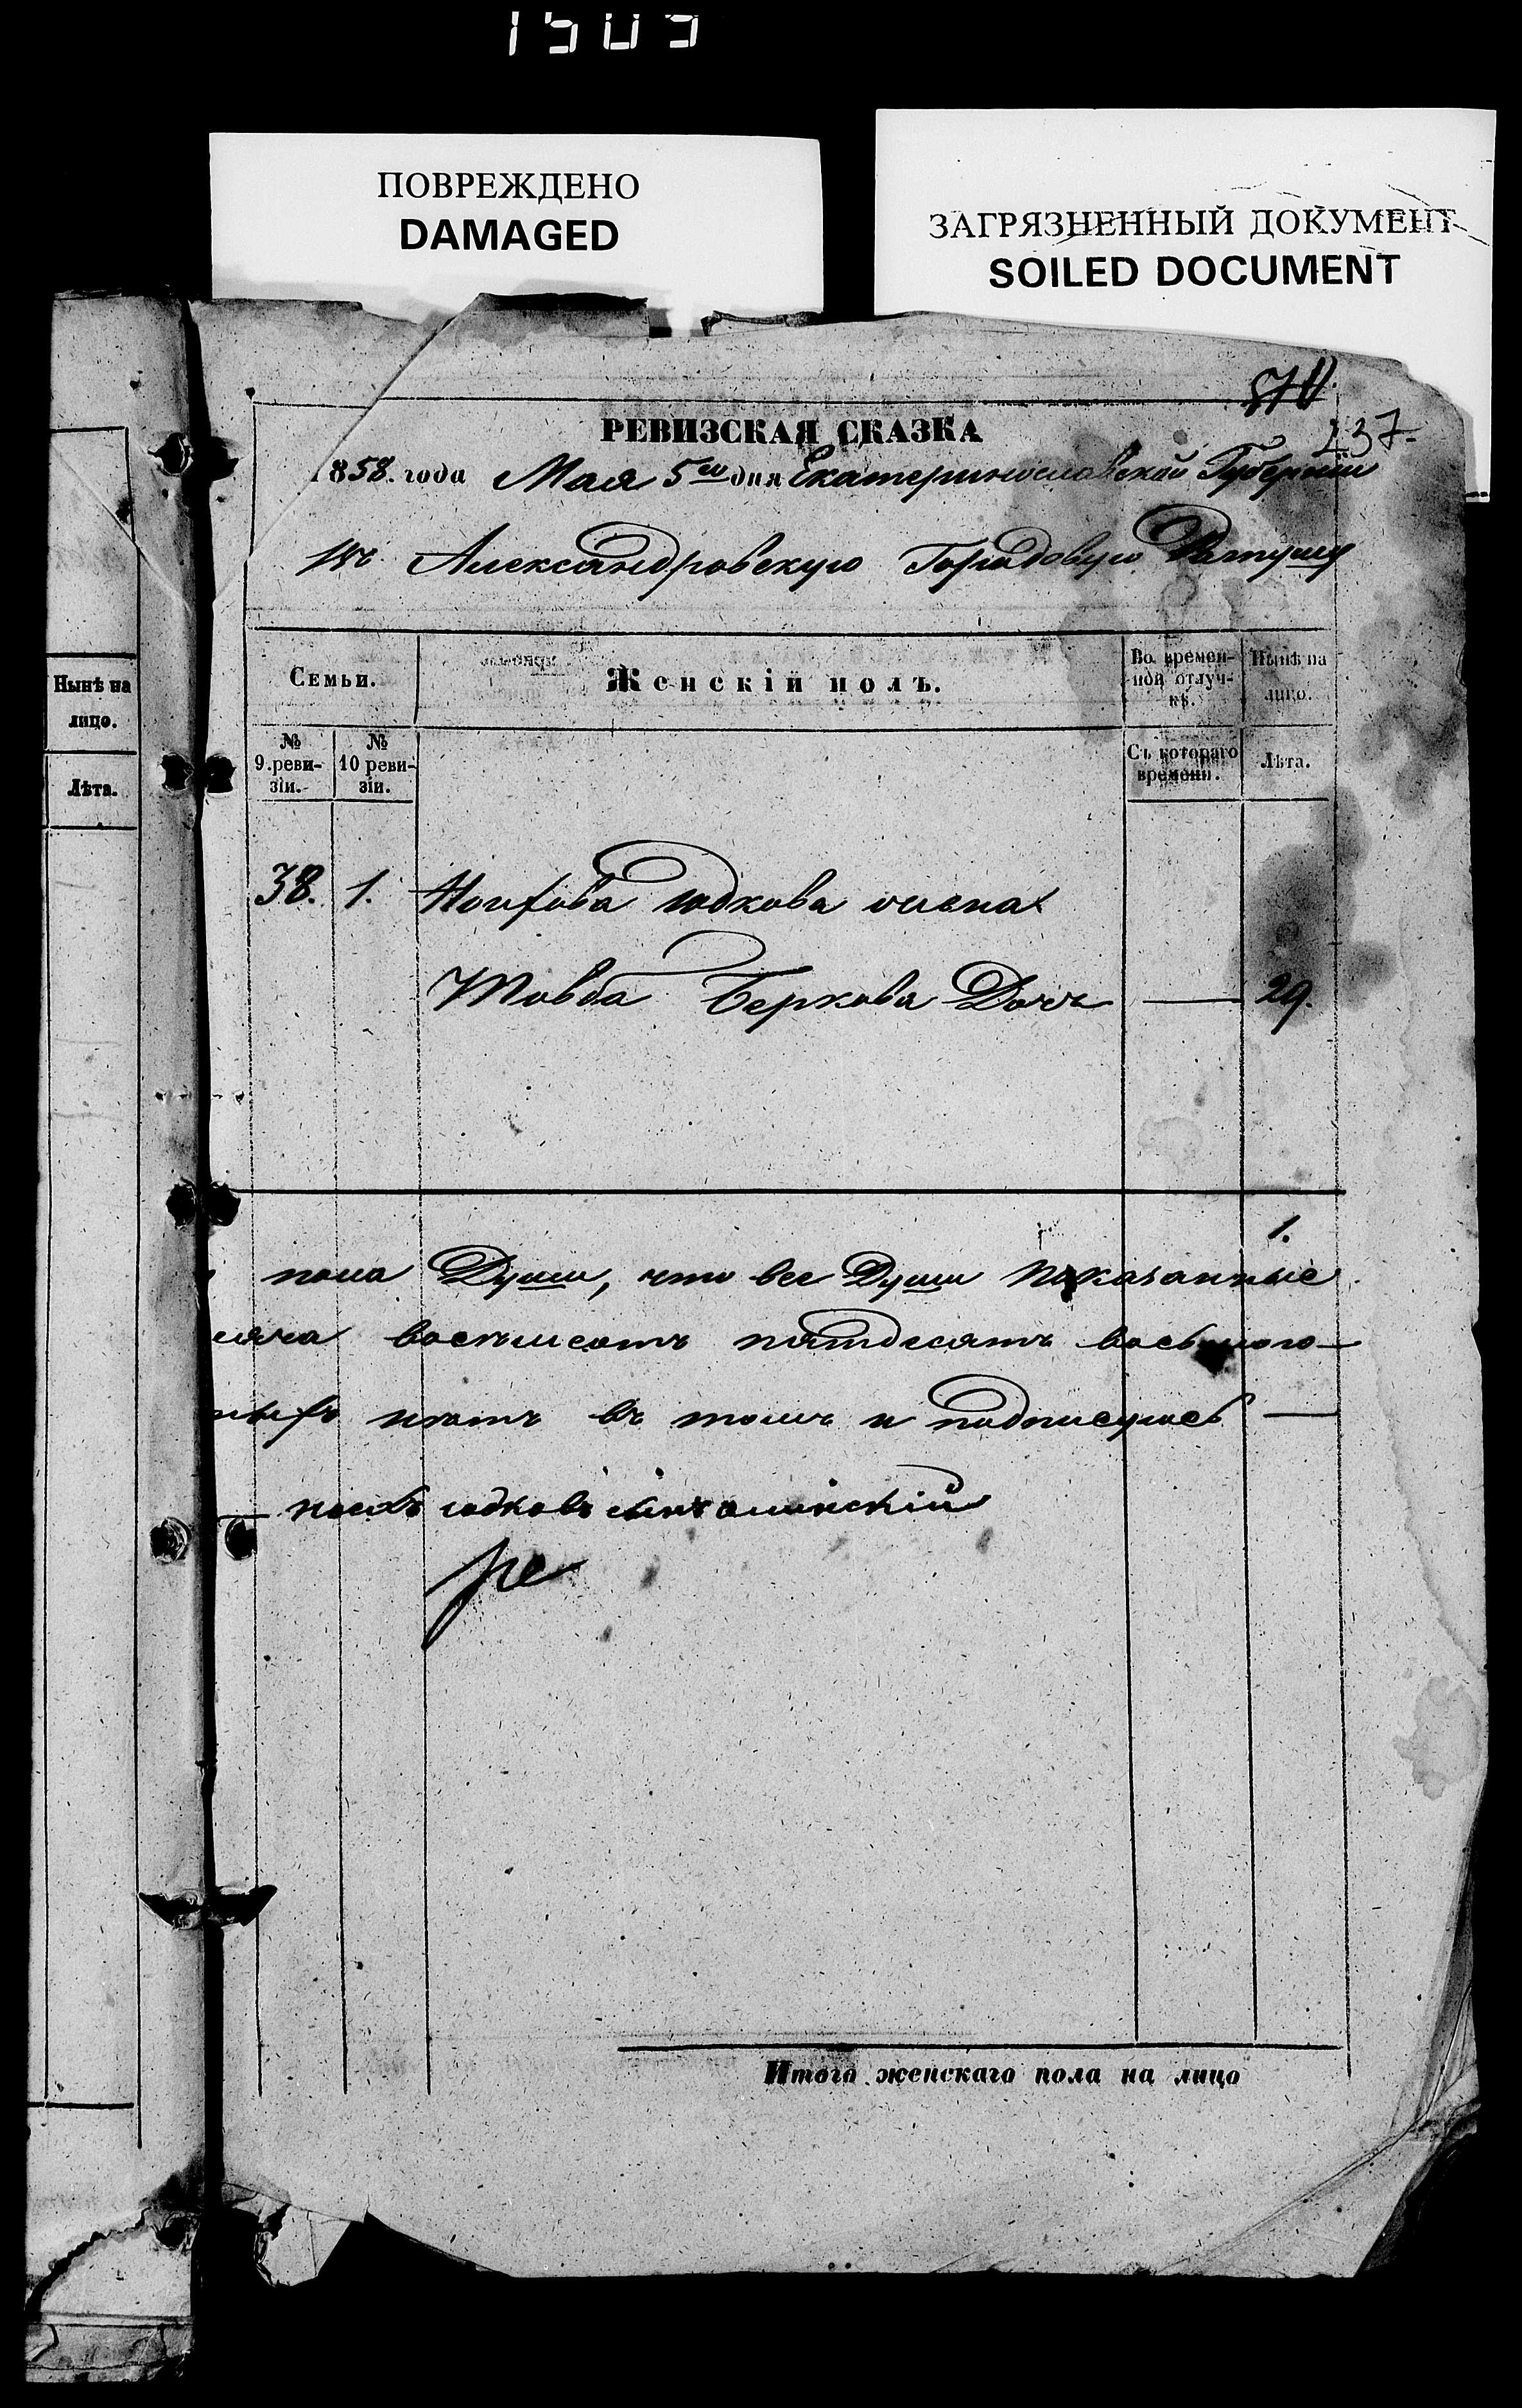 1503
ПОВРЕЖДЕНО
DAMAGED
ЗАГРЯЗНЕННЫЙ ДОКУМЕНТ
SOILED DOCUMENT
237.
РЕВИЗСКАЯ СКАЗКА
1858. года Мая 5го дня Екатеринославской Губернии
въ Александровскую Городовую Ратушу
Нынѣ на лицо.
Лѣта.
Семьи.
Женскій полъ.
Во времен-
ной отлуч-
кѣ.
Нынѣ на
лицо.
№
9 реви-
зіи.
№
10 реви-
зіи.
Съ котораго
времени.
Лѣта.
38. 1. юдкова жена
Товба Беркова Дочь — 29.
1.
пола Души, что все Души показанные
сяча восемьсотъ пятдесятъ восьмого —
ныхъ нетъ въ томъ и подписуюсь —
юдковъ
Итого женскаго пола на лицо